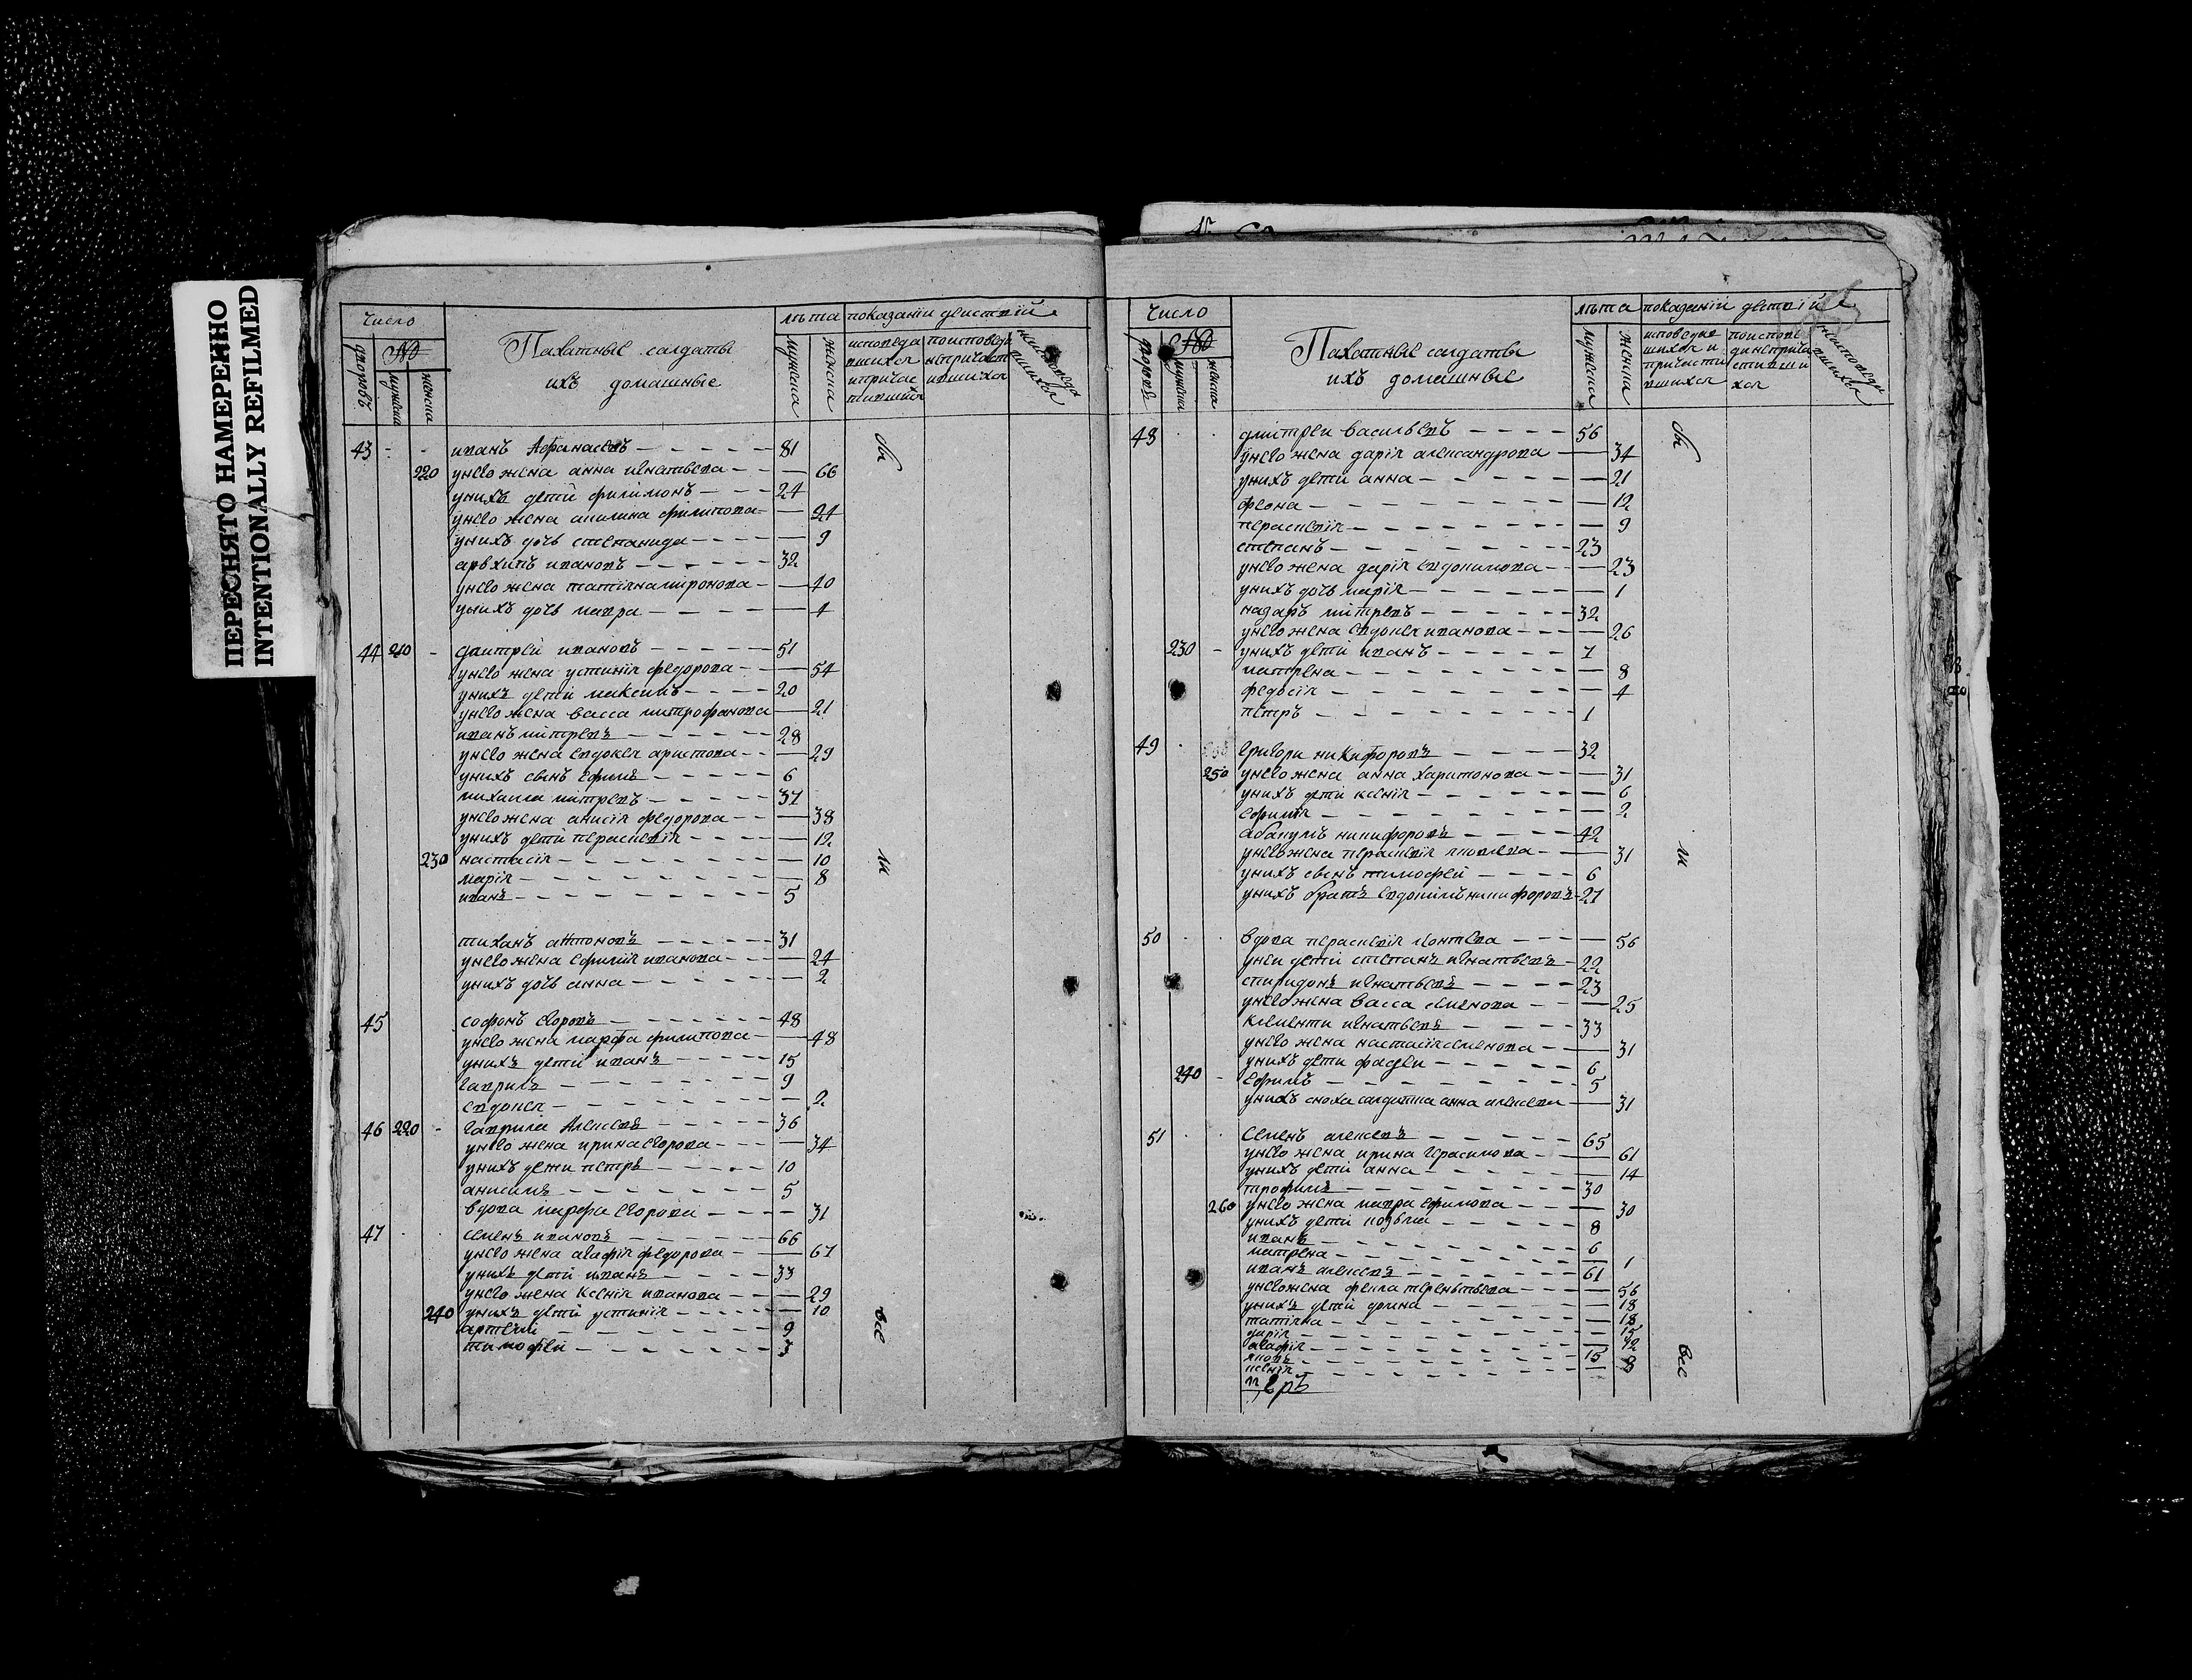 ПЕРЕСНЯТО НАМЕРЕННО
INTENTIONALLY REFILMED
число
Пахатные салдаты
ихъ домашные
лѣта показаніи
мужеска женска
43 иванъ Афанасевъ 81
220 унево жена анна игнатьева 66
унихъ дети филимонъ 24
унево жена акилина филипова 24
унихъ дочь степанида 9
архипъ ивановъ 32
унево жена татияна миронова 40
унихъ дочь мавра 4
44 210 дмитреи ивановъ 51
унево жена устиния федорова 54
унихъ дети максимъ 20
унево жена васса митрофанова 21
иванъ митревъ 28
унево жена евдокея аристова 29
унихъ сынъ ефимъ 6
михаила митревъ 37
унево жена анисия федорова 38
унихъ дети пераскевия 12
230 настасия 10
мария 8
иванъ 5
тиханъ антоновъ 31
унево жена ефимия иванова 24
унихъ дочь анна 2
45 софонъ егоровъ 48
унево жена марфа филипова 48
унихъ дети иванъ 15
гаврилъ 9
евдокея 2
46 220 гаврила Алексевъ 36
унево жена ирина егорова 34
унихъ дети петръ 10
анисимъ 5
вдова марфа егорова 31
47 семенъ ивановъ 66
унево жена агафия федорова 67
унихъ дети иванъ 33
унево жена ксения иванова 29
240 унихъ дети устиния 10
артеми 9
тимофеи 3
бы
ли
все
число
Пахатные салдаты
ихъ домашные
лѣта показании
мужеска женска
48 дмитреи васильевъ 56
унево жена дария александрова 34
унихъ дети анна 21
феона 12
пераскевия 9
степанъ 23
унево жена дария евдокимова 23
унихъ дочь мария 1
назаръ митревъ 32
унево жена евдокея иванова 26
230 унихъ дети иванъ 7
матрена 8
федосия 4
петръ 1
49 григори никифоровъ 32
250 унево жена анна харитонова 31
унихъ дети ксения 6
ефимия 2
абакумъ никифоровъ 42
унево жена пераскевия яковлева 31
унихъ сынъ тимофеи 6
унихъ братъ евдокимъ никифоровъ 27
50 вдова пераскевия леонтева 56
унеи дети степанъ игнатьевъ 22
спиридонъ игнатьевъ 23
унево жена васса семенова 25
клементи игнатьевъ 33
унево жена настасия семенова 31
унихъ дети фадеи 6
240 ефимъ 5
унихъ сноха салдатка анна алексеева 31
51 семенъ алексевъ 65
унево жена ирина герасимова 61
унихъ дети анна 14
трофимъ 30
260 унево жена мавра ефимова 30
унихъ дети козьма 8
иванъ 6
матрена 1
иванъ алексевъ 61
унево жена фекла тереньтьева 56
унихъ дети домна 18
татияна 18
дария 15
агафия 12
яковъ 15
ксения 8
бы
ли
все